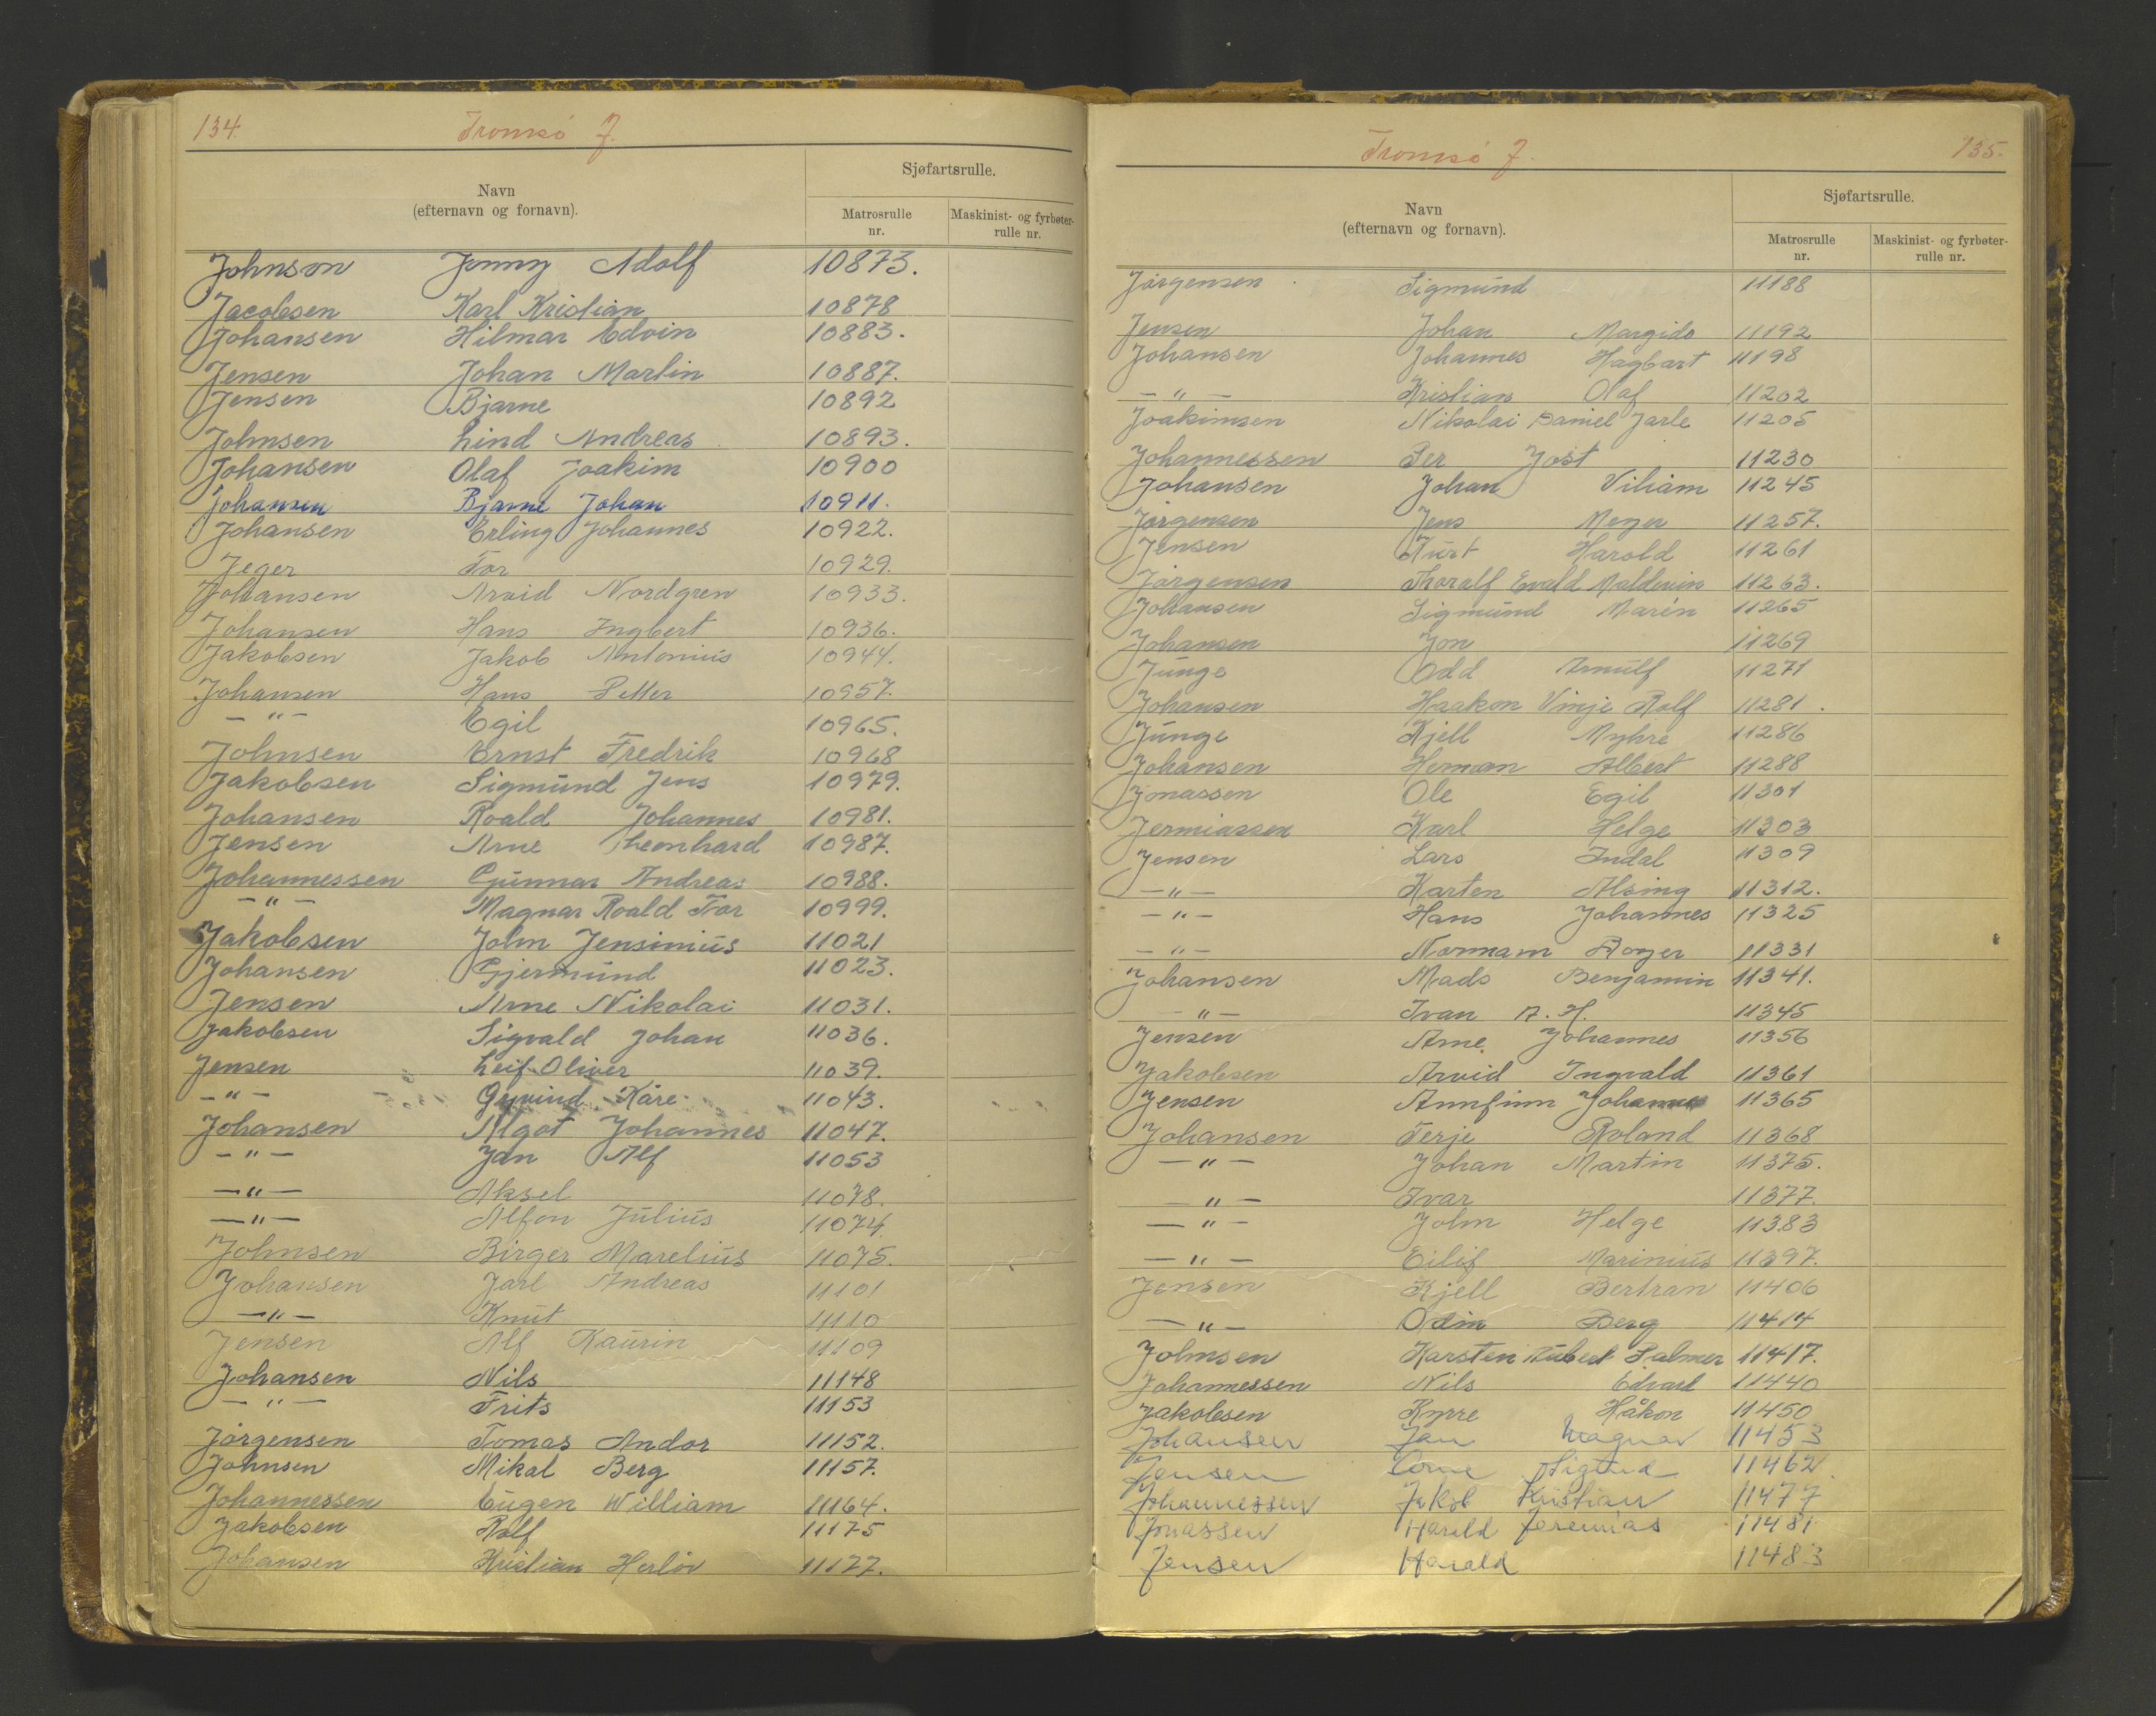 134.
Tromsø J.
Navn
(efternavn og fornavn).
Sjøfartsrulle.
Matrosrulle
nr.
Maskinist- og fyrbøter-
rulle nr.
Johnson Jonny Adolf 10873.
Jacobsen Karl Kristian 10878
Johansen Hilmar Edvin 10883.
Jensen Johan Martin 10887.
Jensen Bjarne 10892
Johnsen Lind Andreas 10893.
Johansen Olaf Joakim 10900
Johansen Bjarne Johan 10911.
Johansen Erling Johannes 10922.
Jeger Tor 10929.
Johansen Arvid Nordgren 10933.
Johansen Hans Ingbert 10936.
Jakobsen Jakob Antonius 10944.
Johansen Hans Petter 10957.
— " — Egil 10965.
Johnsen Ernst Fredrik 10968
Jakobsen Sigmund Jens 10979.
Johansen Roald Johannes 10981.
Jensen Arne Leonhard 10987.
Johannessen Gunnar Andreas 10988.
— " — Magnar Roald Tor 10999.
Jakobsen John Jensinius 11021
Johansen Gjermund 11023.
Jensen Arne Nikolai 11031.
Jakobsen Sigvald Johan 11036.
Jensen Leif Oliver 11039.
— " — Gyvind Kåre 11043.
Johansen Algot Johannes 11047.
— " — Jan Alf 11053
— " — Aksel 11078.
— " — Alfon Julius 11074.
Johnsen Birger Marelius 11075.
Johansen Jarl Andreas 11101
— " — Knut 11110
Jensen Alf Kaurin 11109
Johansen Nils 11148
— " — Frits 11153
Jørgensen Tomas Andor 11152.
Johnsen Mikal Berg 11157.
Johannessen Eugen William 11164.
Jakobsen Rolf 11175
Johansen Kristian Herløv 11177.
Tromsø J.
135.
Navn
(efternavn og fornavn).
Sjøfartsrulle.
Matrosrulle
nr.
Maskinist- og fyrbøter-
rulle nr.
Jørgensen Sigmund 11188
Jensen Johan Margido 11192
Johansen Johannes Hagbart 11198
— " — Kristian Olaf 11202
Joakimsen Nikolai Daniel Jarle 11205
Johannessen Per Jost 11230
Johansen Johan Viliam 11245
Jørgensen Jens Meyer 11257.
Jensen Kurt Harold 11261
Jørgensen Thoralf Evald Maldevin 11263.
Johansen Sigmund Marén 11265
Johansen Jon 11269
Junge Odd Arnulf 11271
Johansen Haakon Vinje Rolf 11281.
Junge Kjell Myhre 11286
Johansen Herman Albert 11288
Jonassen Ole Egil 11301
Jermiassen Karl Helge 11303
Jensen Lars Indal 11309
— " — Karten Alsing 11312.
— " — Hans Johannes 11325
— " — Normann Roger 11331
Johansen Mads Benjamin 11341.
— " — Ivan A. H. 11345
Jensen Arne Johannes 11356
Jakobsen Arvid Ingvald 11361
Jensen Annfinn Johannes 11365
Johansen Terje Roland 11368
— " — Johan Martin 11375.
— " — Ivar 11377.
— " — John Helge 11383
— " — Eilif Marinius 11397.
Jensen Kjell Bertran 11406
— " — Odin Berg 11414
Johnsen Karsten Hubert Palmer 11417.
Johannessen Nils Edvart 11440
Jakobsen Kyrre Håkon 11450
Johansen Jan Magnar 11453
Jensen Arne Sigurd 11462
Johannessen Jakob Kristian 11477
Jonassen Harald Jeremias 11481
Jensen Harald 11483